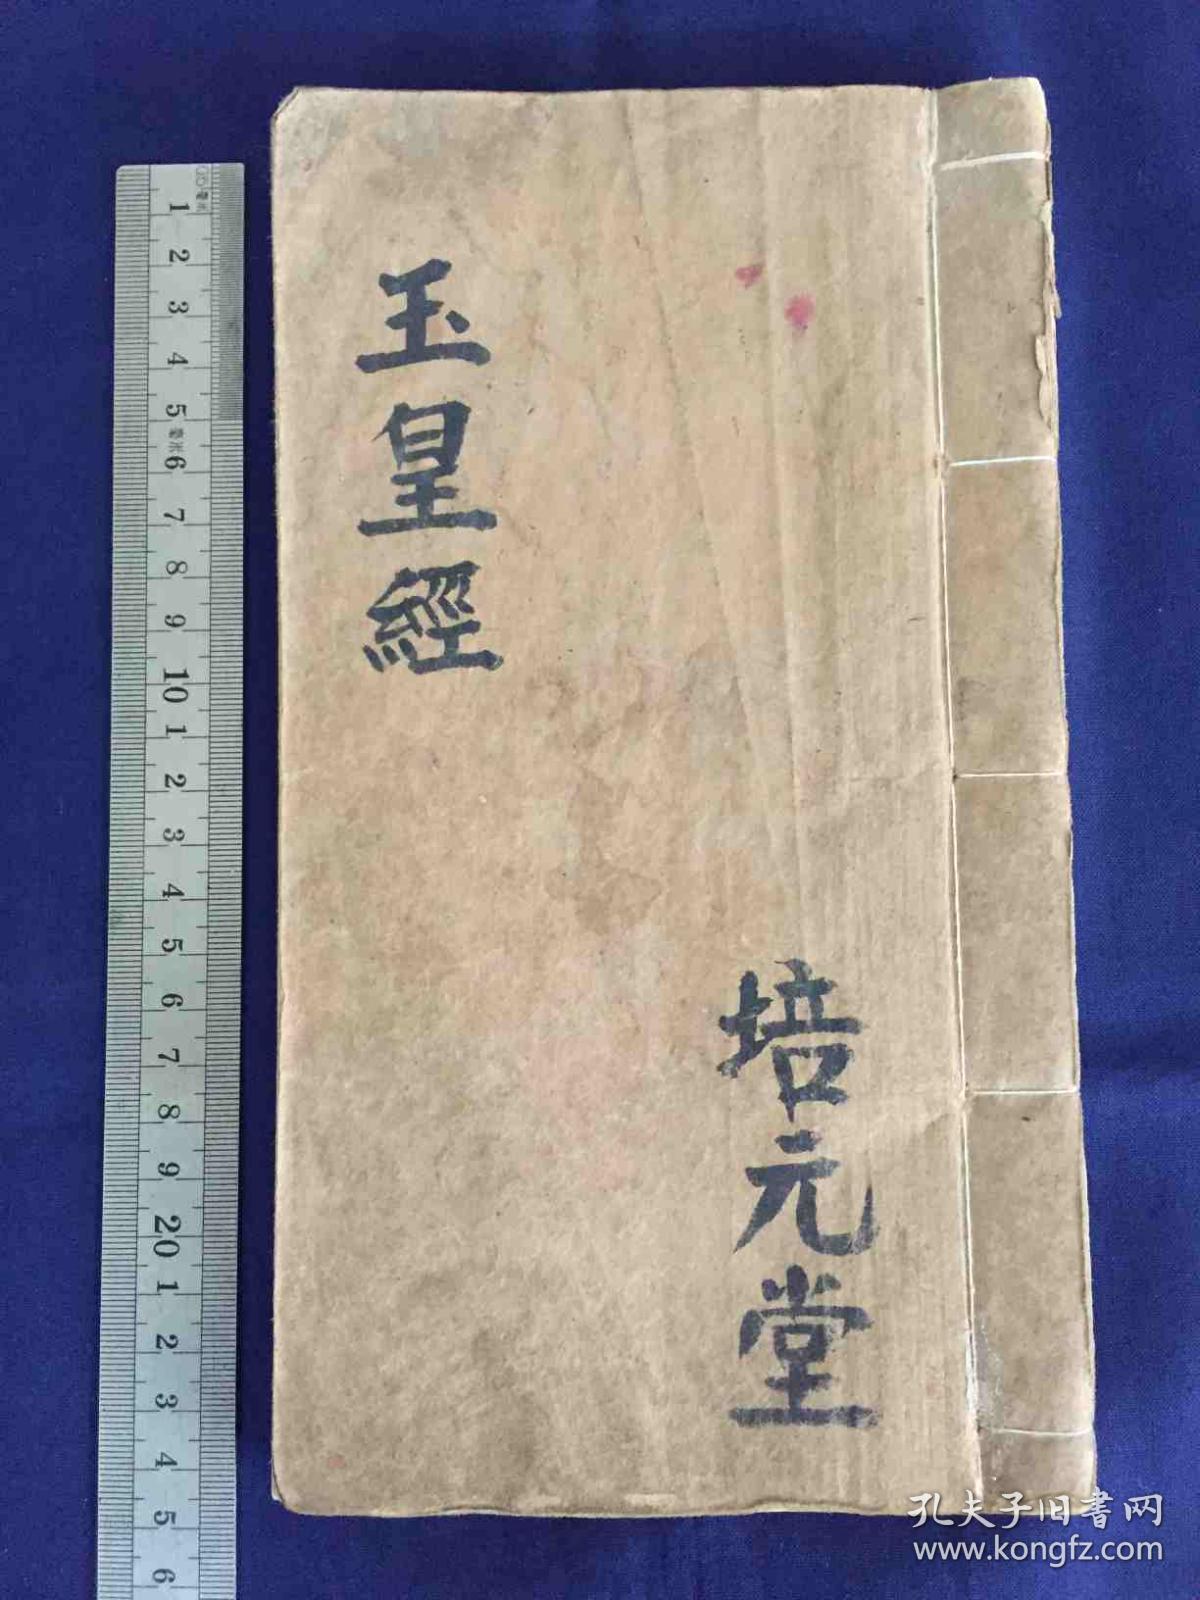 玉皇經
培元堂
毫米
1
2
3
4
5
毫米
6
7
8
9
10
1
2
3
4
5
6
7
8
9
20
1
2
3
4
5
6
孔夫子旧書网
www.kongfz.com